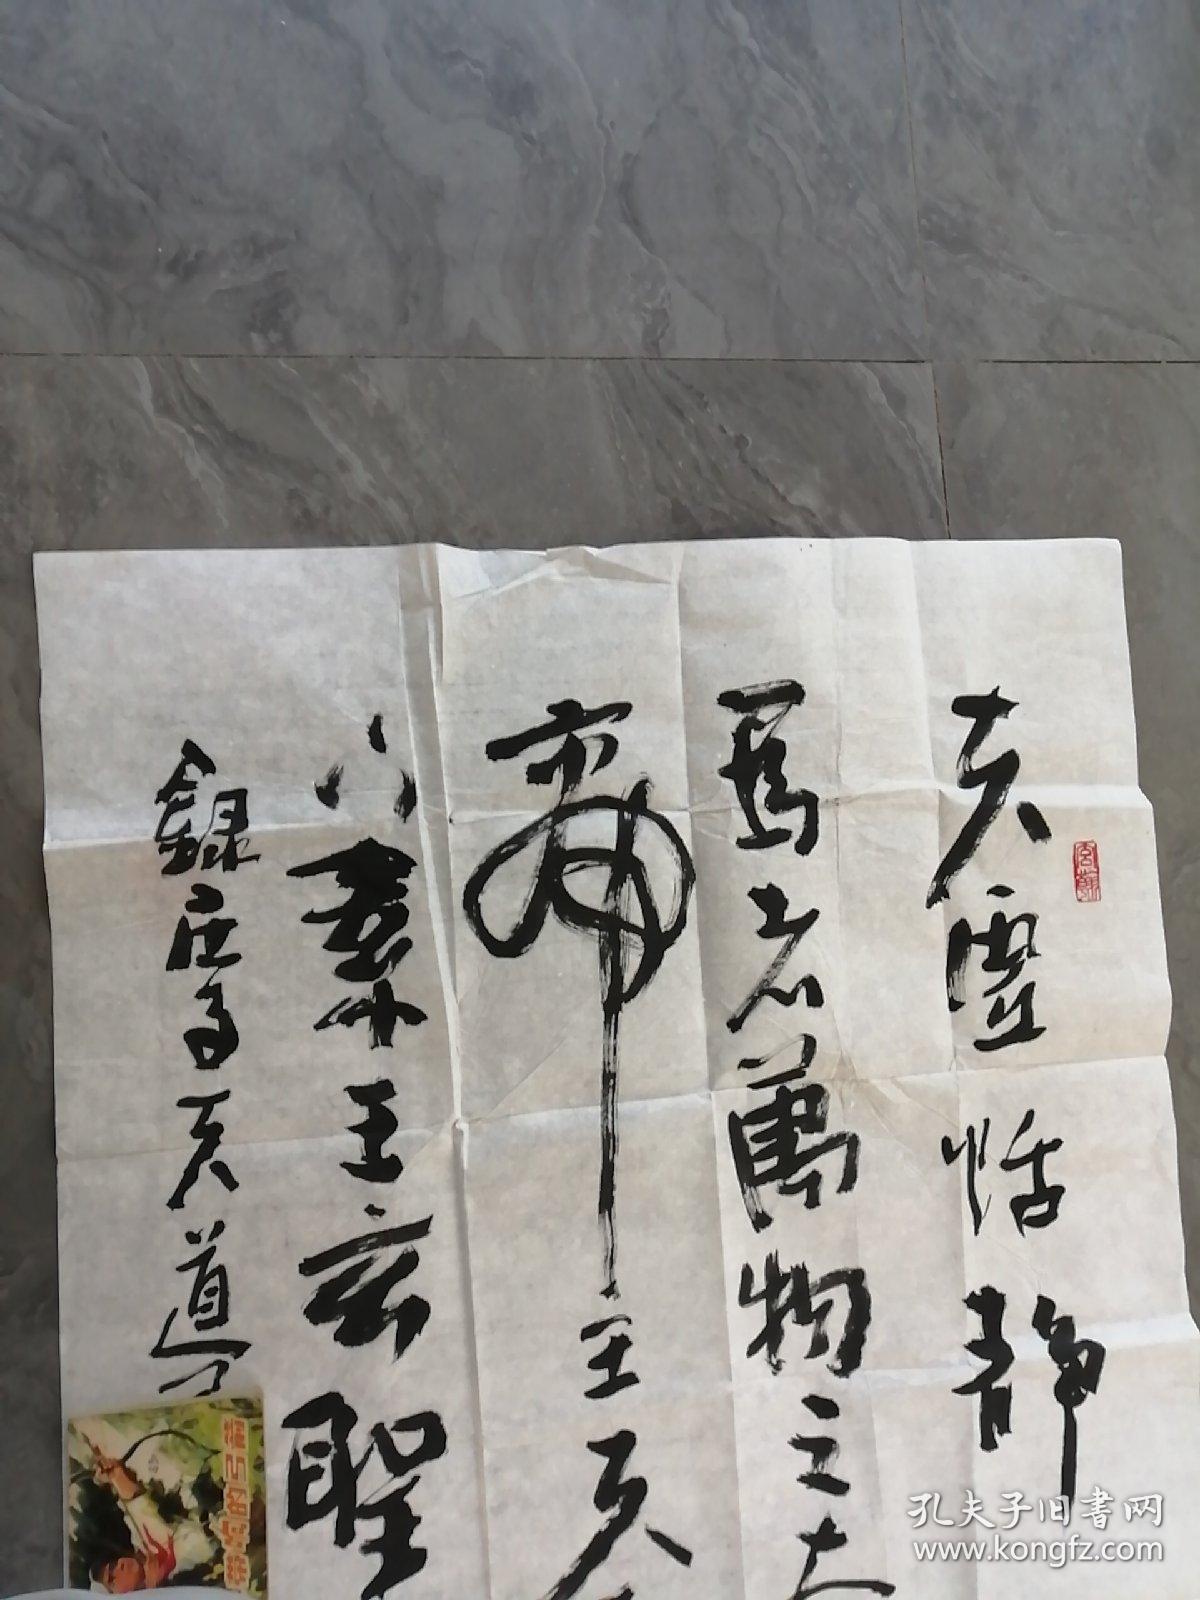 夫虛恬靜
為者萬物之本
帝王天
下素王玄聖
錄庄子天道
孔夫子旧書网
www.kongfz.com